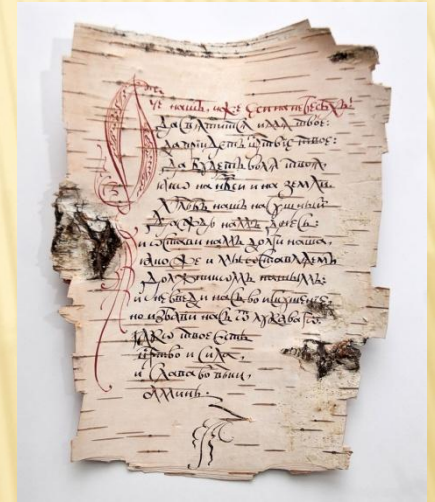 Отче нашъ, иже еси на небесѣхъ:
да святится имя твое:
да приидетъ царствіе твое:
да будетъ воля твоя,
яко на нбси и на земли.
Хлѣбъ нашъ насущный
даждь намъ днесь:
и остави намъ долги наша,
якоже и мы оставляемъ
должникомъ нашымъ:
и не введи насъ во искушеніе:
но избави насъ ѿ лукаваго:
яко твое есть
црство и сила,
и слава во вѣки,
Аминь: